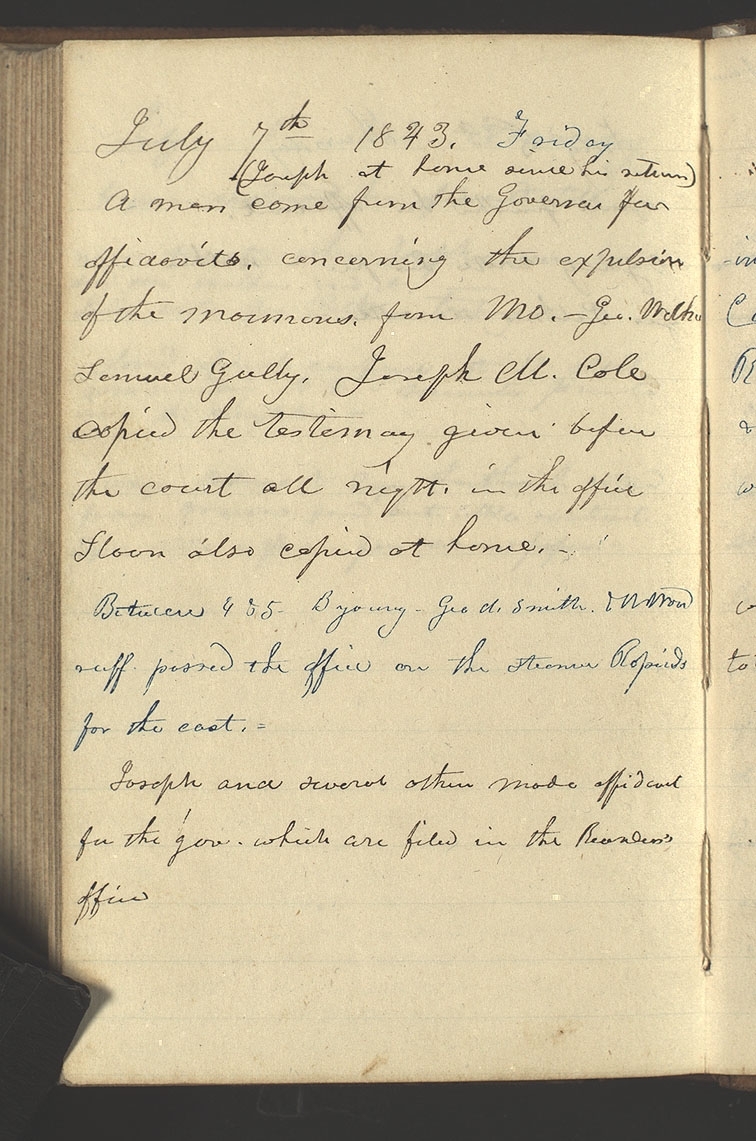 July 7th 1843. Friday
(Joseph at home since his return)
A man come from the Governor for
affidavits. concerning the expulsion
of the mormons. from Mo. — Geo. Walker
Samuel Gully. Joseph M. Cole
copied the testimony given before
the court all night. in the office
Sloan also copied at home. —
Between 4 & 5 - B young - Geo A. Smith. & W Wood
ruff. passed the office on the steamer Rapids
for the east. =
Joseph and several others made affidavit
for the gov. which are filed in the Recorders
office
in
C
R
&
w
co
to